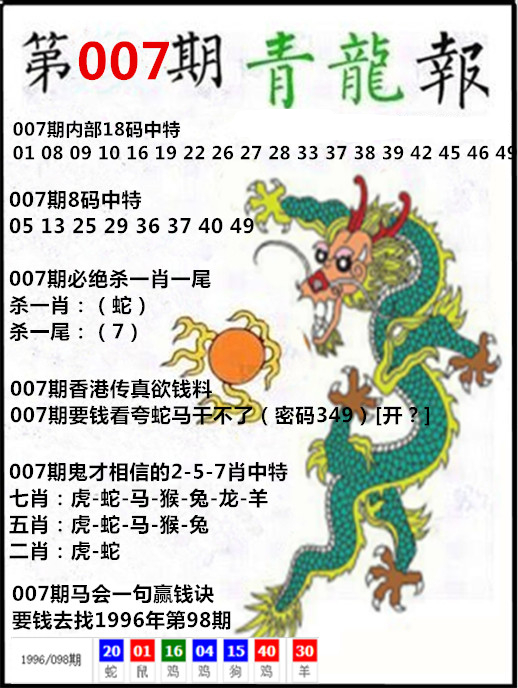 第007期 青龍報
007期内部18码中特
01 08 09 10 16 19 22 26 27 28 33 37 38 39 42 45 46 49
007期8码中特
05 13 25 29 36 37 40 49
007期必绝杀一肖一尾
杀一肖：（蛇）
杀一尾：（7）
007期香港传真欲钱料
007期要钱看夸蛇马干不了（密码349）[开？]
007期鬼才相信的2-5-7肖中特
七肖：虎-蛇-马-猴-兔-龙-羊
五肖：虎-蛇-马-猴-兔
二肖：虎-蛇
007期马会一句赢钱诀
要钱去找1996年第98期
1996/098期 20 01 16 04 15 40 30
蛇 鼠 鸡 鸡 狗 鸡 羊